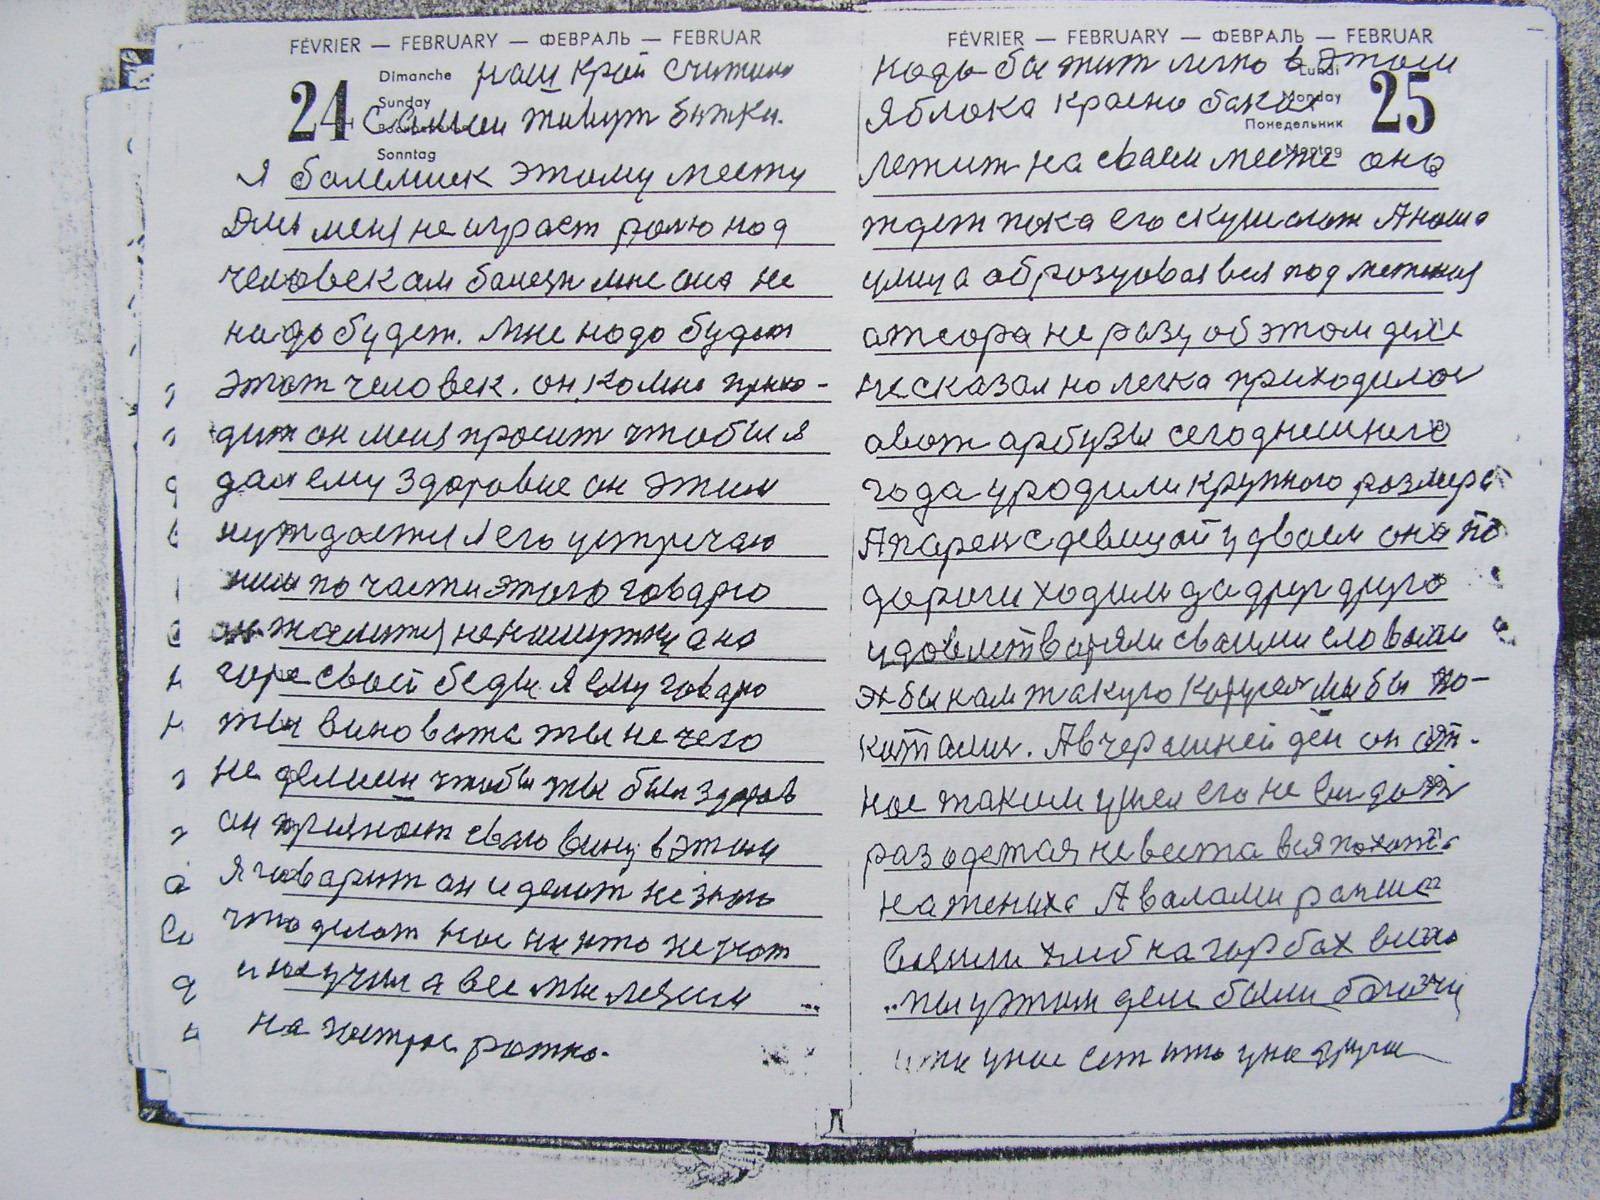 FÉVRIER — FEBRUARY — ФЕВРАЛЬ — FEBRUAR
24
Dimanche
Sunday
Sonntag
наш край считали
самыи живут бытки.
я болемшек этому месту
Для меня не играет ролю над
человекам болезн мне она не
надо будет. мне надо будет
этот человек. он ко мне прихо-
дит он меня просит чтобы я
дал ему здоровие он этим
нуждается я его устречаю
ним по части этого говарю
жалится на
горе своей беды я ему говарю
ты виноват ты нечего
не делаеш чтобы ты был здоров
он признает свою вину в этим
я говарит он и делат не знаю
что делат нас никто не учат
и научил а все мы лезим
на хитрое
FÉVRIER — FEBRUARY — ФЕВРАЛЬ — FEBRUAR
25
Lundi
Monday
Понедельник
Montag
надо бы жит легко в этом
Яблока красно бакая
лежит на сваем месте оно
ждет пока его скушают А наша
улица образцовая вся подметеная
ат сора не разу об этом деле
не сказал но легка приходилос
авот арбузы сегоднешнего
года уродили крупного размера
А парен с девицай удваем оне по
дароги ходили да друг друга
удовлетваряли сваими словами
эх бы нам такую карусел мы бы по-
катались. А вчерашней ден он от
нас таким ушел его не видат
разодетая невеста вся похожа
на жениха А валами ранше
вазили хлеб на гарбах
мы у этим деле были богачи
у нас ест